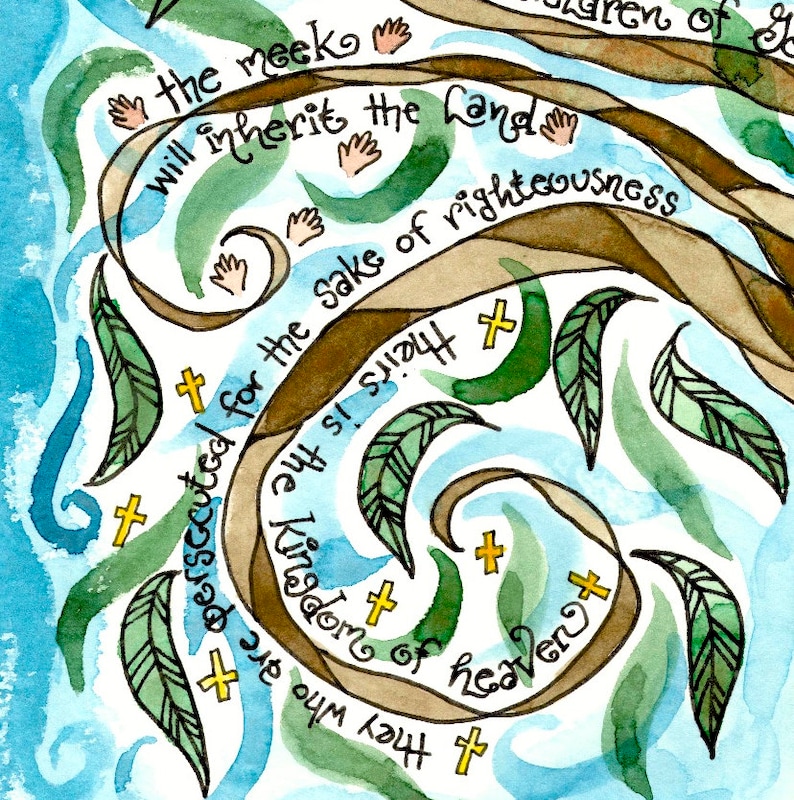 children of Go
the meek
will inherit the land
they who are persecuted for the sake of righteousness
theirs is the kingdom of heaven